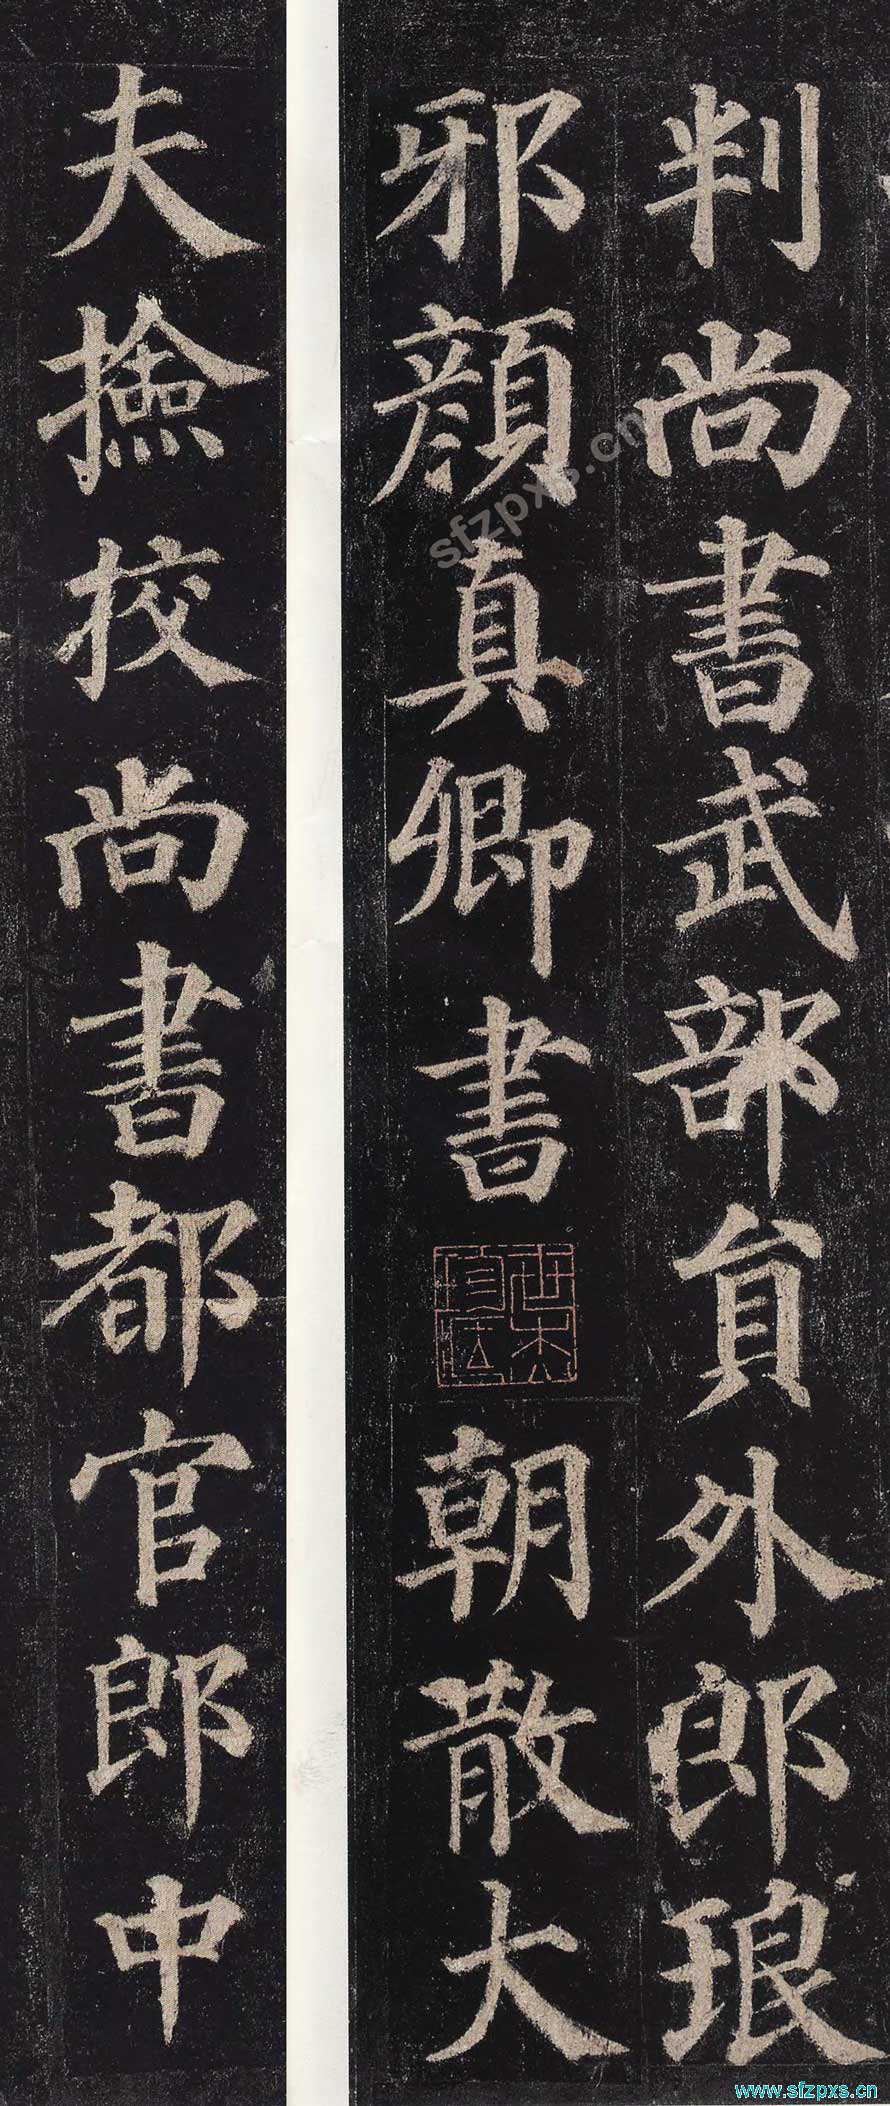 判尚書武部貟外郎琅
邪顔真卿書 朝散大
夫撿挍尚書都官郎中
sfzpxs.cn
www.sfzpxs.cn